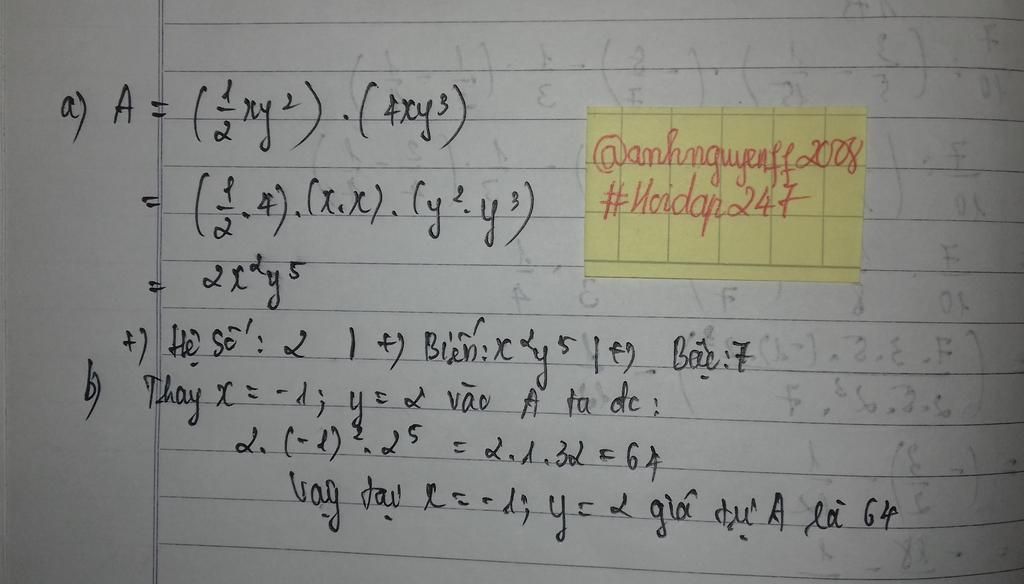 a) A = (1/2 xy²) . (4xy³)
= (1/2 . 4) . (x.x) . (y² . y³)
= 2x²y⁵
+) Hệ số: 2 | +) Biến: x²y⁵ | +) Bậc: 7
b) Thay x = -1; y = 2 vào A ta dc:
2. (-1)² . 2⁵ = 2.1.32 = 64
Vậy tại x = -1; y = 2 giá trị A là 64
@anhnguyenff2008
#Hoidap247